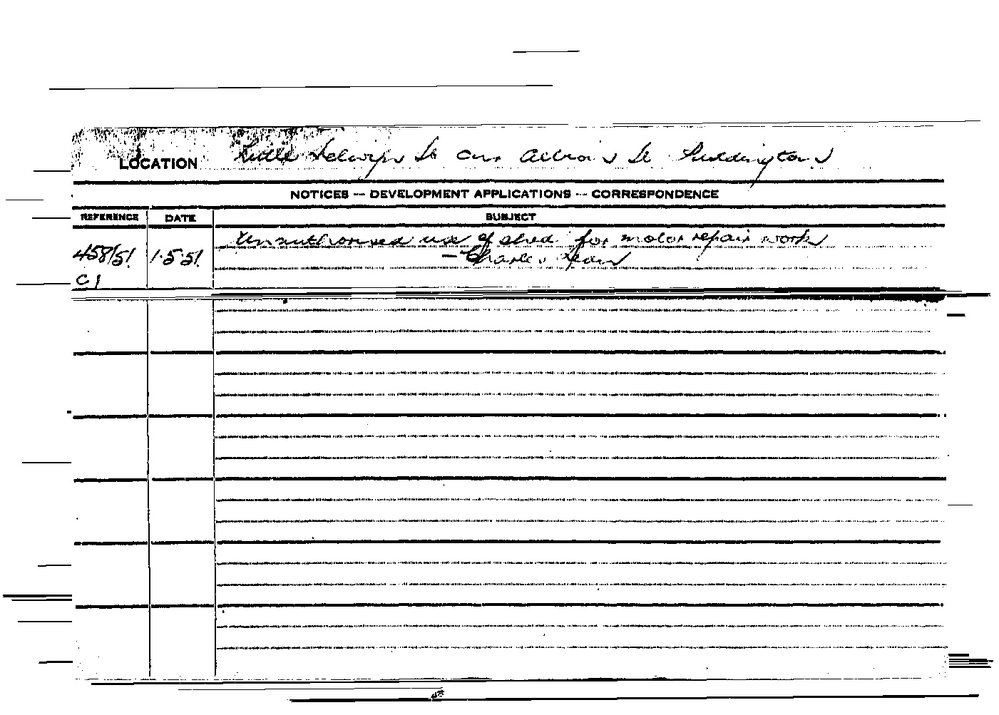 LOCATION Little Selwyn St cnr Albion St Paddington
NOTICES — DEVELOPMENT APPLICATIONS — CORRESPONDENCE
REFERENCE DATE SUBJECT
458/51 1.5.51 Unauthorised use of shed for motor repair work
— Charles
C1